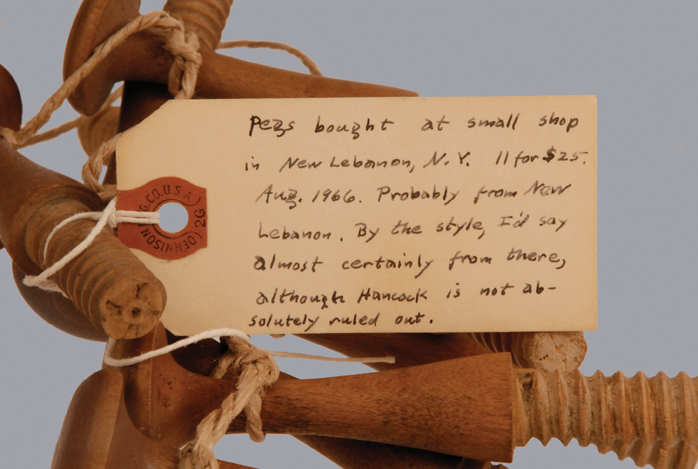 Pegs bought at small shop
in New Lebanon, N.Y. 11 for $25.
Aug. 1966. Probably from New
Lebanon. By the style, I'd say
almost certainly from there,
although Hancock is not ab-
solutely ruled out.
(DENNISON
G.CO.U.S.A)
2G